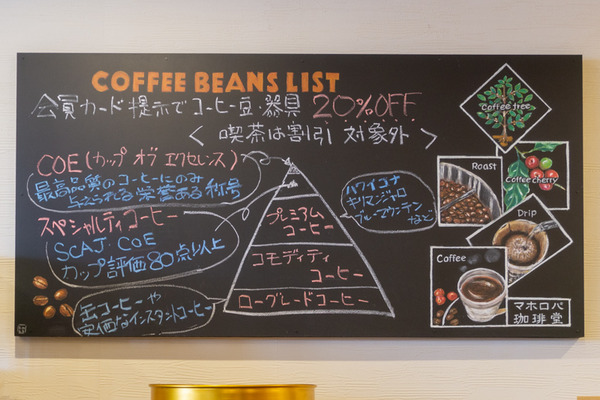 COFFEE BEANS LIST
会員カード提示でコーヒー豆・器具 20%OFF
<喫茶は割引対象外>
COE(カップ オブ エクセレンス)
最高品質のコーヒーにのみ
与えられる栄誉ある称号
スペシャルティコーヒー
SCAJ COE
カップ評価80点以上
缶コーヒーや
安価なインスタントコーヒー
プレミアム
コーヒー
コモディティ
コーヒー
ローグレードコーヒー
ハワイコナ
キリマンジャロ
ブルーマウンテン
など
Coffee tree
Roast
Coffee cherry
Drip
Coffee
マホロバ
珈琲堂